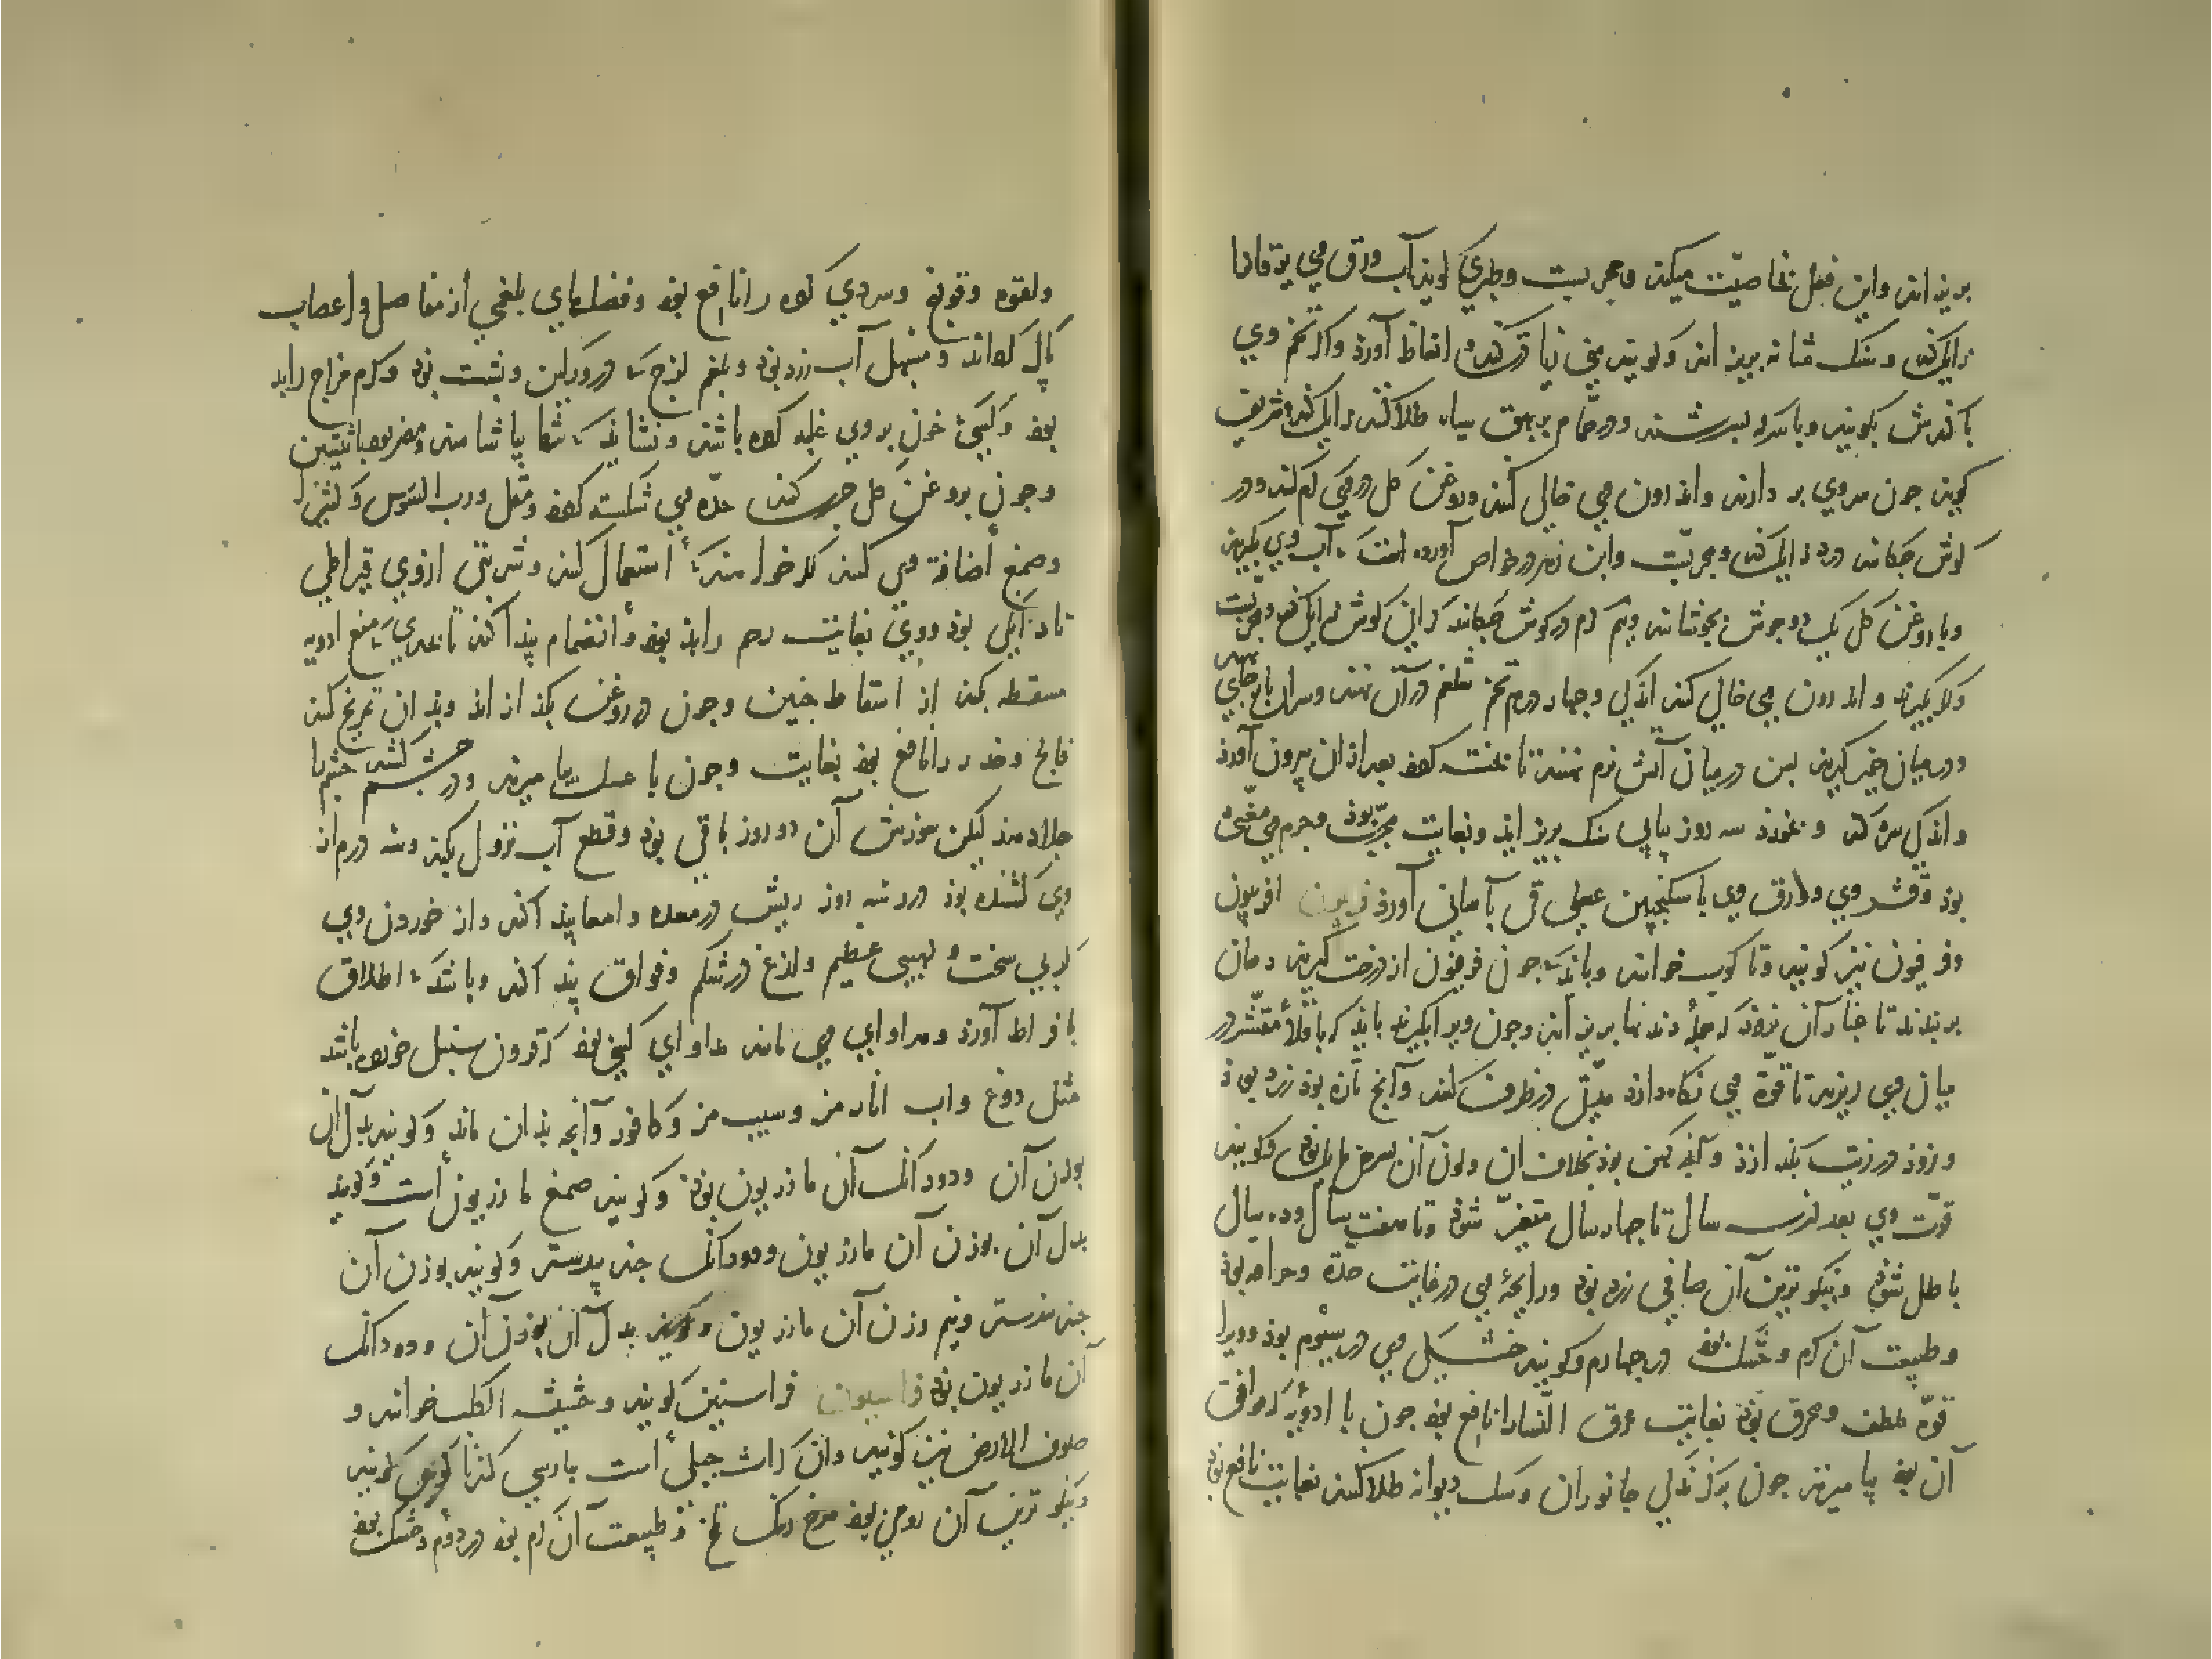 بریزاند واین فعل بخاصیّت میکند ومجربست وطبری کویذ آب ورق وی یرقانرا
زایل کند وسنک مثانه بریزاند وکویند منی زیادت کند و انعاظ آورد واکر تخم وی
با کندش بکوبند وباسرکه بسرشند ودر حمّام بر بهق سیاه طلا کنند زایل کند وشریف
کوید چون سر وی بر دارند واندرون وی خالی کنند وروغن کل در وی کرم کنند ودر
کوش چکانند درد زایل کند ومجربست وابن زهر در خواص آورده است که آب وی بکیرند
وبا روغن کل یک دو جوش بجوشانند ونیم کرم در کوش چکانند کرانی کوش زایل کند ومجربست
واکر بکیرند واندرون وی خالی کنند اندکی وچهار درم تخم شلغم در آن نهند وسر آن باز جای نهند
ودر میان خمیر کیرند پس در میان آتش نرم نهند تا پخته شود بعد از آن بیرون آورند
واندکی سرد کنند وبخورند سه روز پیاپی سنک بریزاند وبغایت مجرّب بوذ وجرم وی مغثی
بوذ وقشر وی وورق وی با سکنجبین عسلی قی بآسانی آورد فربیون افربیون
وفرفیون نیز کویند وتاکوب خوانند وباید که چون فرفیون از درخت کیرند دهان
بربندند تا غبار آن نرود که جمله دندانها بریزاند وچون ویرا بکیرند باید که باقلاء مقشر در
میان وی ریزند تا قوّة وی نکاه دارد مدّتی در ظرف کنند وآنچ تازه بوذ زرد بوذ
وزود در زیت بکدازد وآنچ کهن بوذ بخلاف آن ولون آن بسرخی مایل بوذ وکویند
قوّت وی بعد از سه سال تا چهار سال متغیّر شود وتا هفت سال وده سال
باطل شود ونیکوترین آن صافی زرد بوذ ورایحهٔ وی در غایت حدّة وحرافه بوذ
وطبیعت آن کرم وخشک بوذ در چهارم وکویند خشکی وی در سیوم بوذ وویرا
قوّة ملطف ومحرق بوذ بغایت عرق النّسا را نافع بوذ چون با ادویهٔ که موافق
آن بوذ بیامیزند چون بر کزندکی جانوران وسک دیوانه طلا کنند بغایت نافع بوذ
ولقوه وقولنج وسردی کرده را نافع بوذ وفضلهای بلغمی از مفاصل و اعصاب
پاک کرداند ومسهل آب زرد بوذ وبلغم لزج که در ورکین وپشت بوذ وکرم مزاج را بد
بوذ وکسی که خون بر وی غلبه کرده باشد ونشاید که تنها بیاشامند ومضر بود بانثیین
وچون بروغن کل چرب کنند حدّه وی شکسته کردد ومقل ورب السوس وکثیرا
وصمغ اضافة وی کنند کر خواهند که استعمال کنند وشربتی از وی قیراطی
تا دانکی بوذ ووی بغایت رحم را بد بوذ وانضمام پیدا کند تا بحدی که منع ادویه
مسقطه بکند از اسقاط جنین وچون در روغن بکدازند وبدان تمریخ کنند
فالج وخدر را نافع بوذ بغایت وچون با عسل بیامیزند ودر چشم کشند چشم را
جلا دهند لیکن سوزش آن دو روز باقی بوذ وقطع آب نزول بکند وسه درم از
وی کشنده بوذ در سه روز ریش در معده وامعا پیدا کند واز خوردن وی
کربی سخت ولهیبی عظیم ولذع در شکم وفواق پیدا کند وباشد که اطلاق
بافراط آورد ومداوای وی مانند مداوای کسی بود که قرون سنبل خورده باشد
مثل دوغ واب انار مز وسیب مز وکافور وآنچه بدان ماند وکویند بدل آن
بوزن آن ودودانک آن مازریون بوذ وکویند صمغ مازریون است وکویند
بدل آن بوزن آن مازریون ودودانک جند بیدستر وکویند بوزن آن
جند بیدستر ونیم وزن آن مازریون وکویند بدل آن بوزن آن ودودانک
آن مازریون بوذ فراسیون فراسیین کویند وحشیشه الکلب خوانند و
صوف الارض نیز کویند وان کراث جبلی است بپارسی کندنا کوهی کویند
ونیکوترین آن رومی بوذ سرخ رنک تلخ وطبیعت آن کرم بوذ در دوم وخشک بوذ